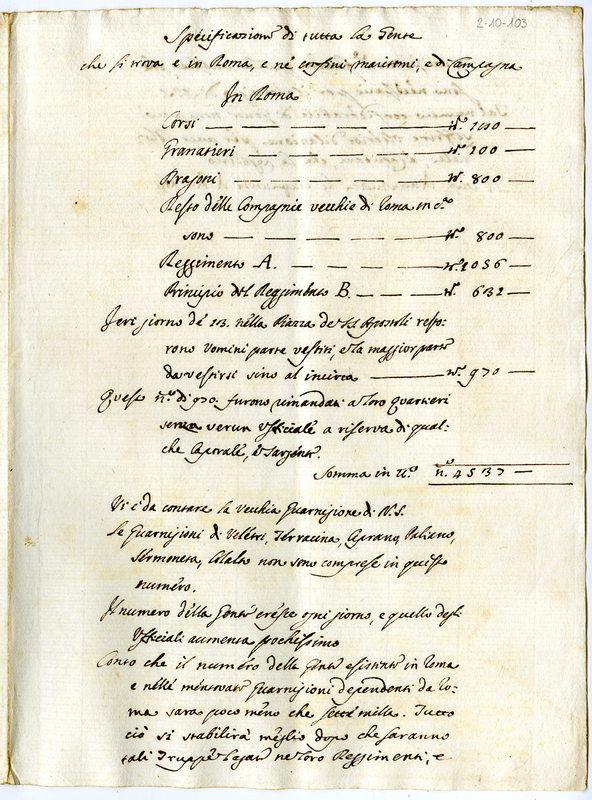 2-10-103
Specificazione di tutta la Gente
che si trova e in Roma, e nè confini marittimi, e di Campagna
In Roma
Corsi — — — — — — n.o
Granatieri — — — — — n.o 100 —
Dragoni — — — — — n.o 800 —
Resto delle Compagnie vecchie di Roma in
sono — — — — — n.o 800 —
Reggimento A. — — — — n.o 1056 —
Principio del Reggimento B. — — — n. 632 —
Jeri giorno de' 23. nella Piazza de' SS. Apostoli resto:
rono Uomini parte vestiti, e la maggior parte
da vestirsi sino al incirca — n.o 970 —
Queste n.o di 970. furono rimandati a loro quartieri
senza verun Ufficiale a riserva di qual:
che Caporale, e Sargente.
Somma in n. 4537 —
Vi è da contare la vecchia Guarnigione di N. S.
Le Guarnigioni di Veletri, Terracina, Ceprano, Paliano,
Sermoneta, non sono comprese in questo
numero.
Il numero della Gente cresce ogni giorno, e quello degli
Ufficiali aumenta pochissimo
Conto che il numero della Gente esistente in Roma
e nelle mentovate Guarnigioni dependenti da Ro:
ma sara poco meno che sette milla. Tutto
ciò si stabilirà meglio dopo che saranno
tali Truppe legate ne loro Reggimenti, e